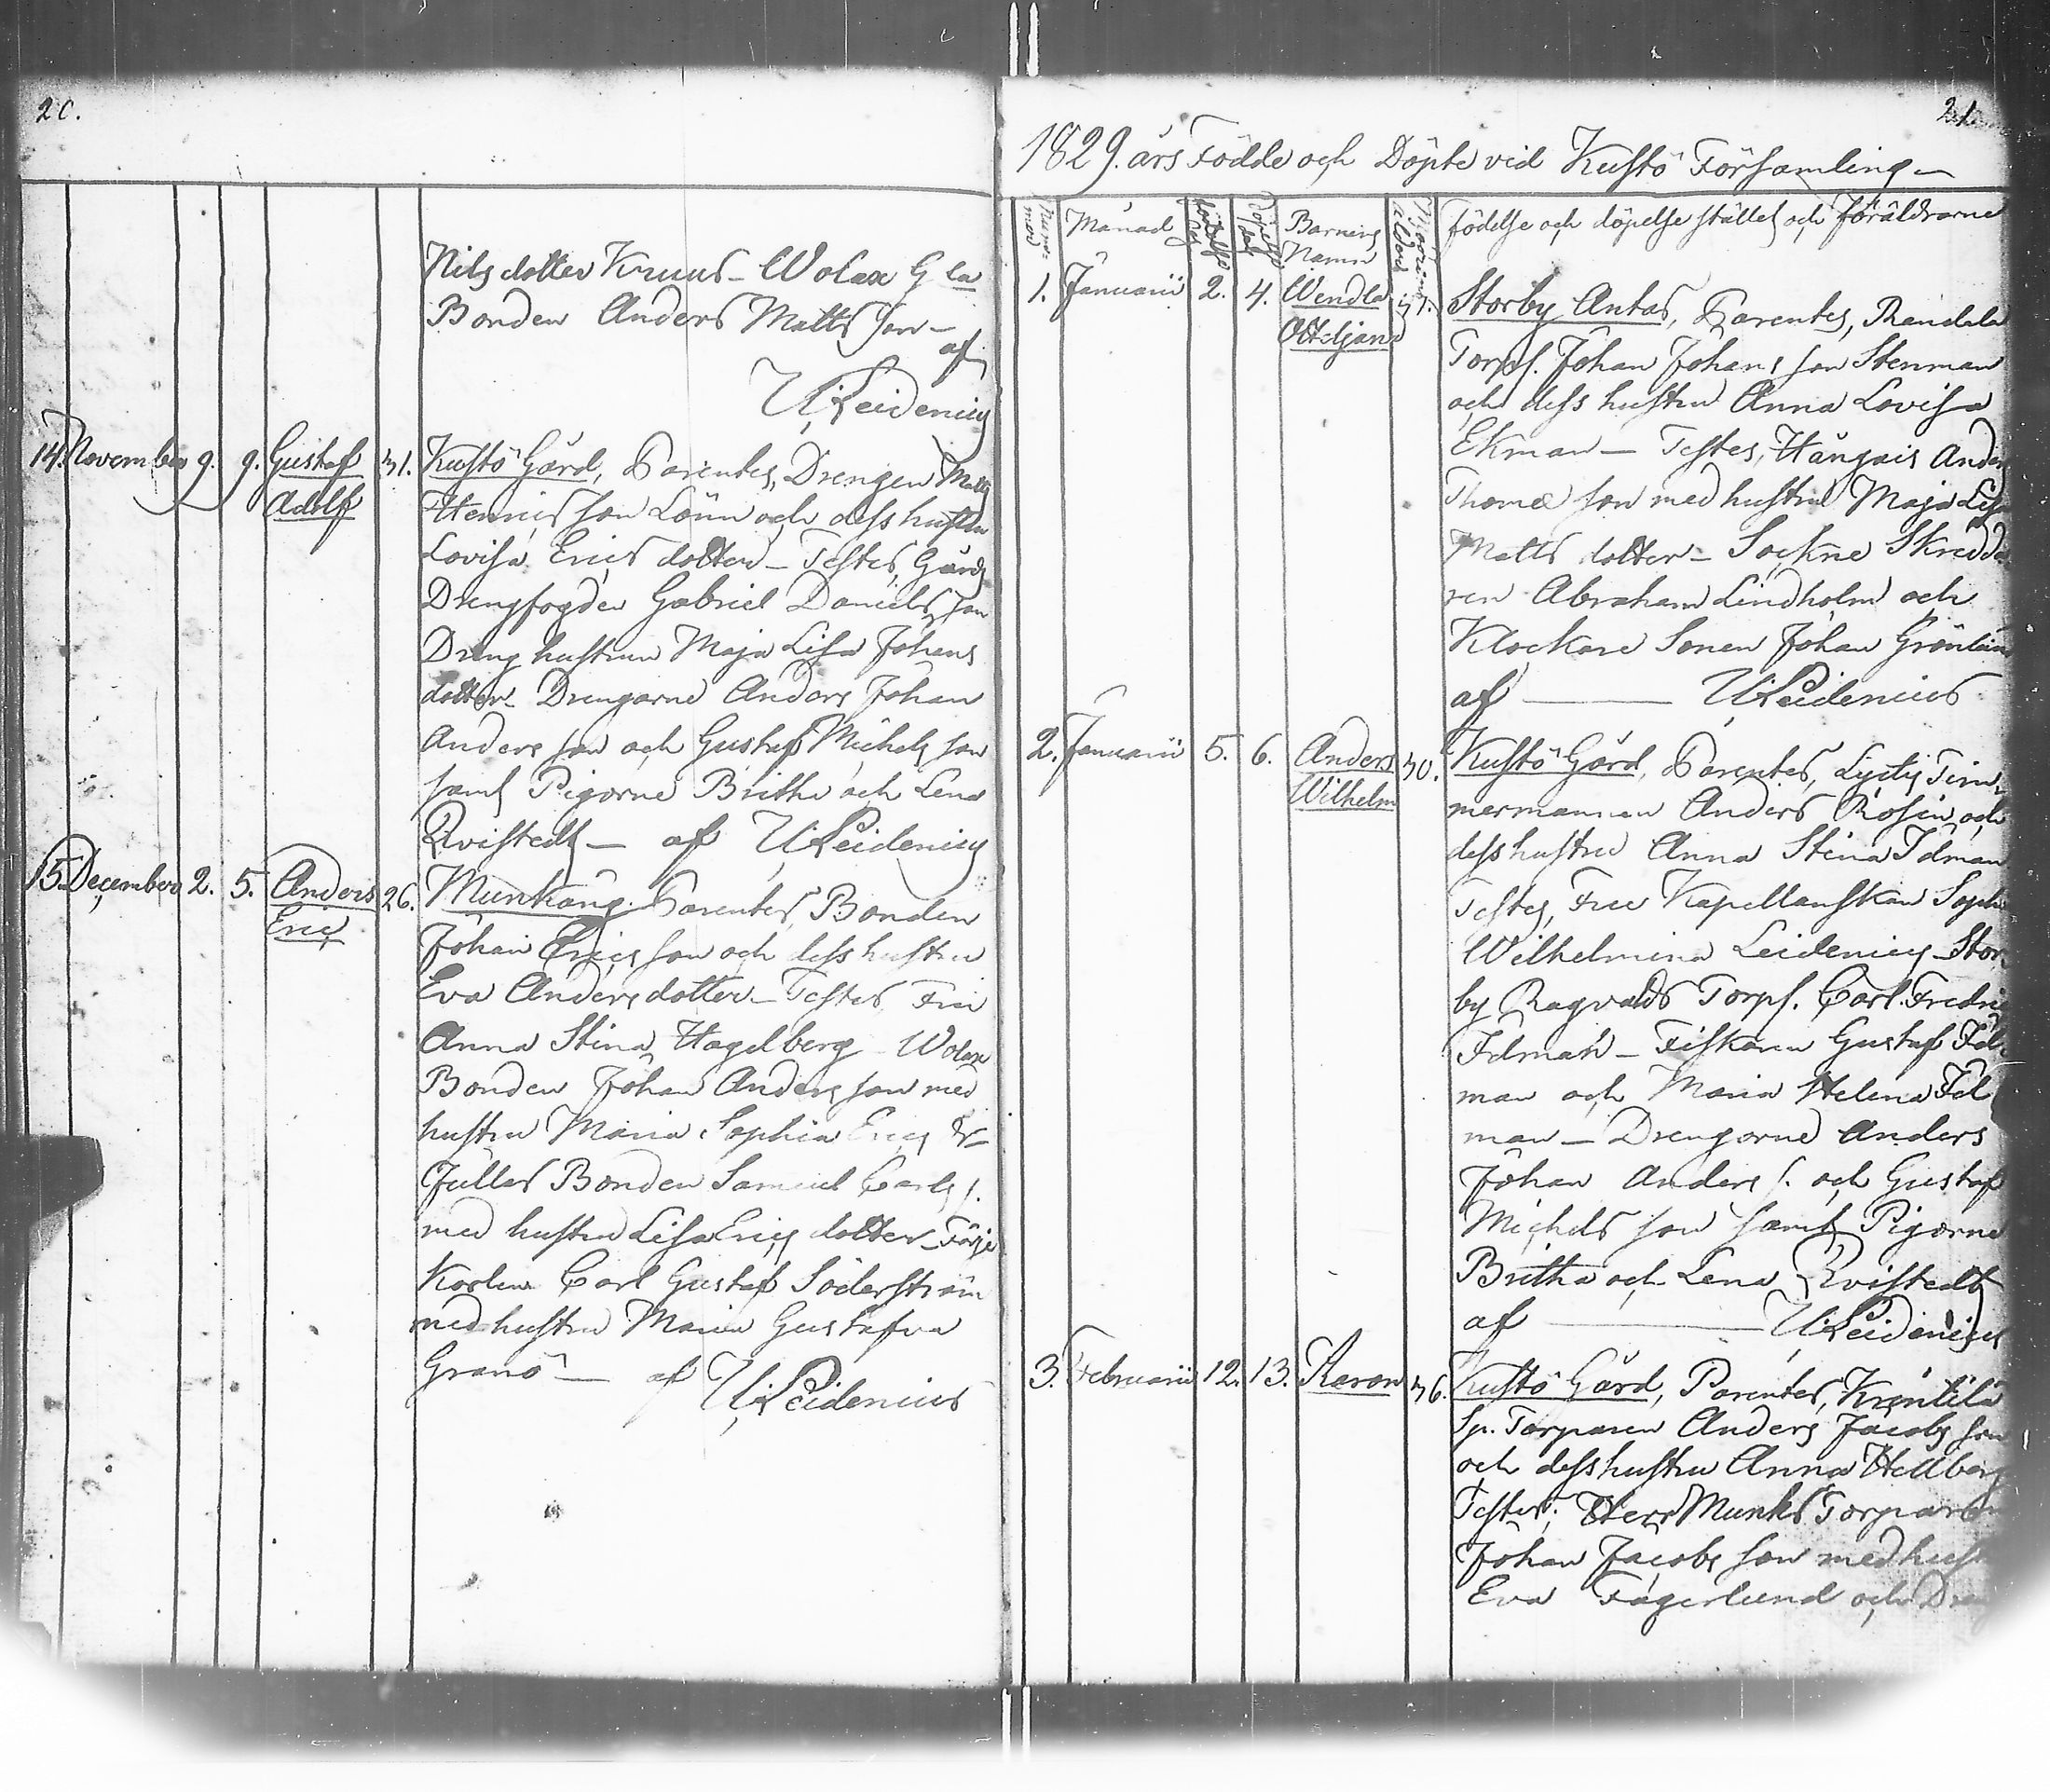 20.
Nils dotter Kruus - Wolax G la
Bonden Anders Matts son -
af
U. Leidenius
14. November 9. 9. Gustaf Adolf 31. Kustö Gård, Parentes, Drengen Matts
Henrics son Lönn och dess hustru
Lovisa Erics dotter - Testes, Gårds
Drengfogden Gabriel Daniels son
Dreng hustrun Maja Lisa Johans
dotter - Drengarne Anders Johan
Anders son och Gustaf Michels son
samt Pigorne Britha och Lena
Qvistedt - af U. Leidenius
15. December 2. 5. Anders Eric 26. Munkäng. Parentes, Bonden
Johan Erics son och dess hustru
Eva Anders dotter - Testes Fru
Anna Stina Hagelberg - Wolax
Bonden Johan Anders son med
hustru Maria Sophia Erics
Jullas Bonden Samuel Carls s.
med hustru Lisa Erics dotter - Färje
Karlen Carl Gustaf Söderström
med hustru Maria Gustafva
Granö - af U. Leidenius
21
1829. års Födde och Döpte vid Kustö Församling -
Nummer Månad födelse dag Döpelse dag Barnens Namn Moderns ålder födelse och döpelse stället och föräldrarne
1. Januarii 2. 4. Wendla Ottiljana 31. Storby Antas, Parentes, Randala
Torps. Johan Johans son Stenman
och dess hustru Anna Lovisa
Ekman - Testes, Hångais Anders
Thomæ son med hustru Maja Lisa
Matts dotter - Sockne Skredda
ren Abraham Lindholm och
Klockare Sonen Johan Grönlund
af — U. Leidenius
2. Januarii 5. 6. Anders Wilhelm 30. Kustö Gård, Parentes, Lycks Tim
mermannen Anders Rosin och
dess hustru Anna Stina Idman
Testes, Fru Kapellanskan Soph
Wilhelmina Leidenius - Stor
by Ragvalds Torps. Carl Fredric
Idman - Fiskaren Gustaf Id
man och Maria Helena Id
man - Drengarne Anders
Johan Anders s. och Gustaf
Michels son samt Pigorne
Britha och Lena Qvistedt
af — U. Leidenius
3. Februarii 12. 13. Aaron 36. Kustö Gård, Parentes, Krentilä
Sp. Torparen Anders Jacobs son
och dess hustru Anna Hellberg
Testes: Herr Munks Torparen
Johan Jacobs son med hust
Eva Fagerlund och Dreng